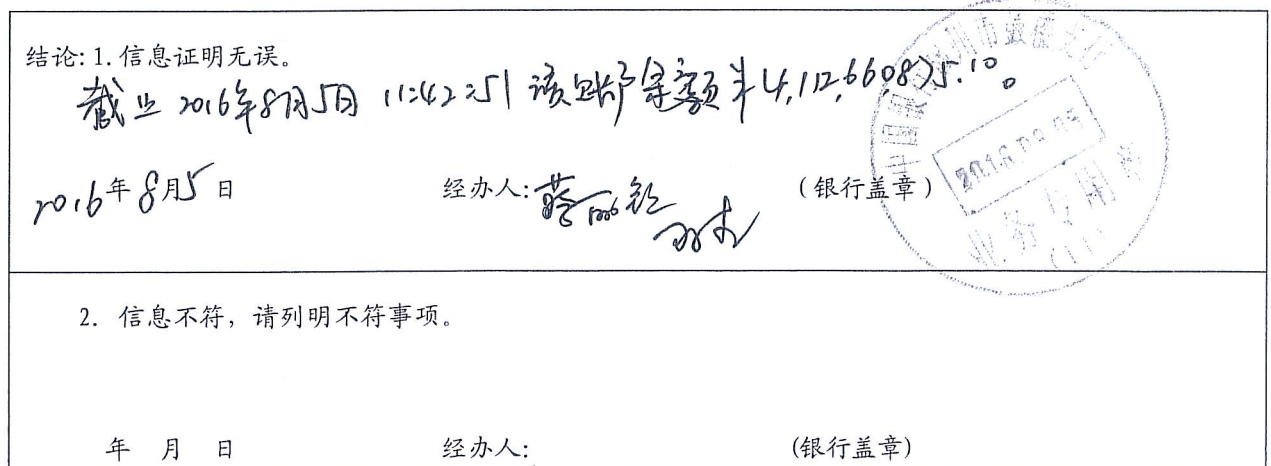 结论: 1. 信息证明无误。
截止 2016年8月5日 11:42:51 该账户余额¥4,112,660,875.10。
2016年8月5日 经办人: (银行盖章)
2016.08.05
业务专用章
2. 信息不符，请列明不符事项。
年 月 日 经办人: (银行盖章)